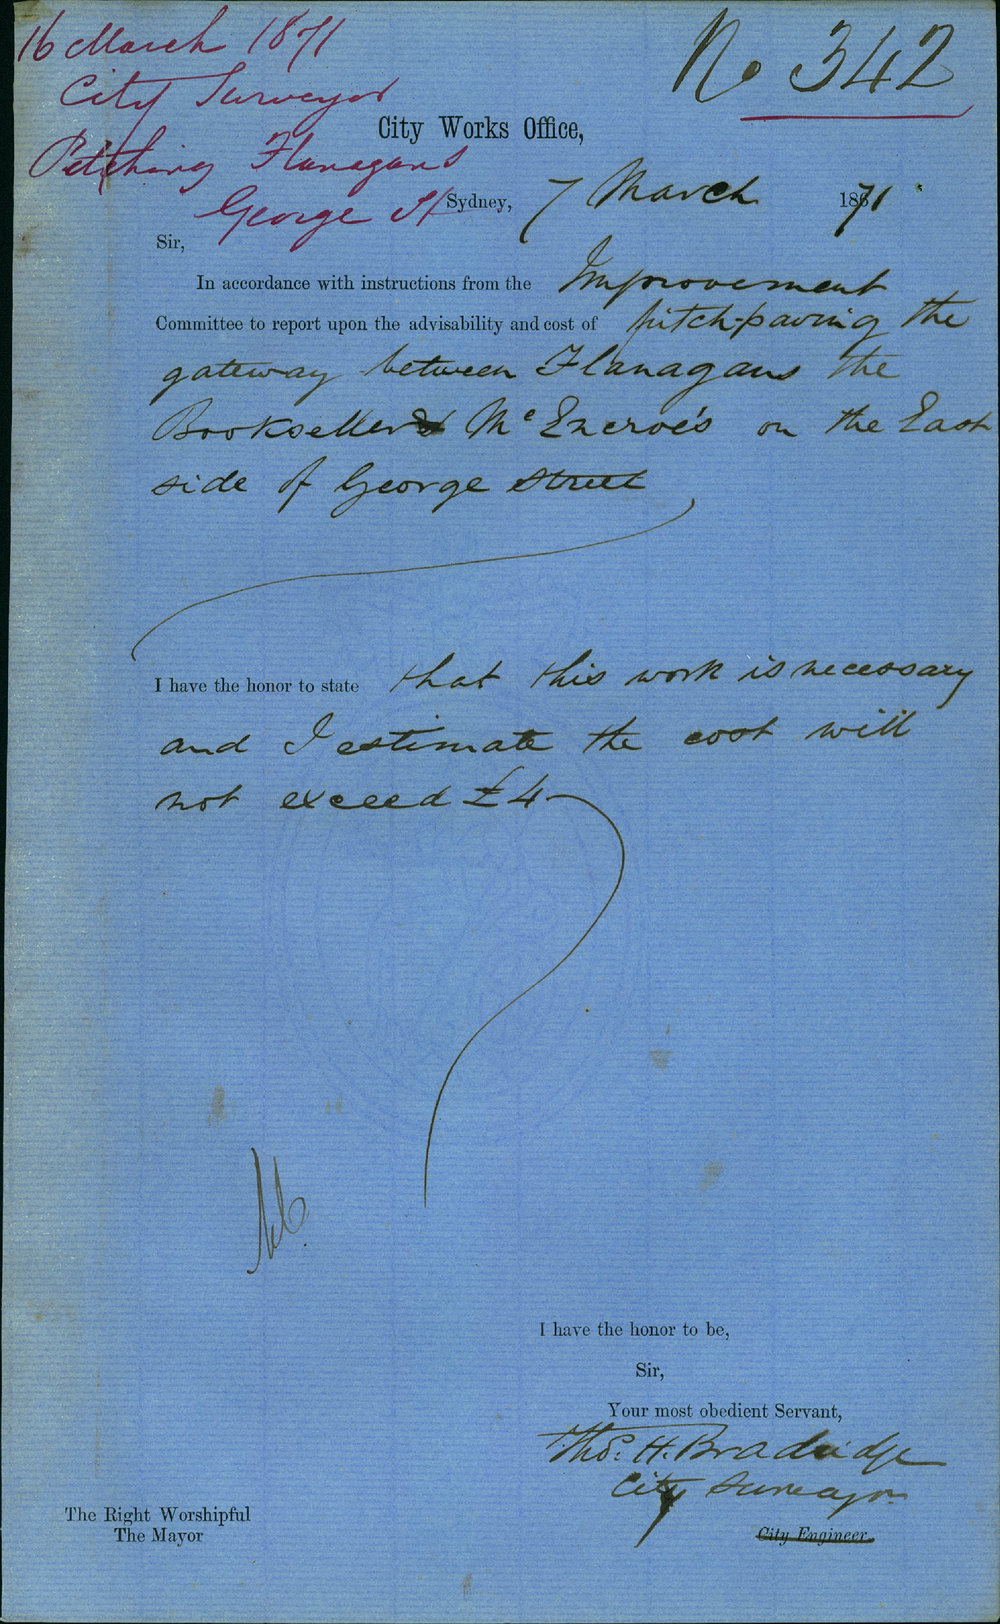 16 March 1871
No 342
City Surveyor
City Works Office,
Pitching Flanagans
George St
Sydney, 7 March 1871
Sir,
In accordance with instructions from the Improvement
Committee to report upon the advisability and cost of pitch-paving the
gateway between Flanagans the
Bookseller & McEncroe's on the East
side of George Street
I have the honor to state that this work is necessary
and I estimate the cost will
not exceed £4
I have the honor to be,
Sir,
Your most obedient Servant,
Thos. H. Bradridge
City Surveyor
The Right Worshipful
The Mayor
City Engineer